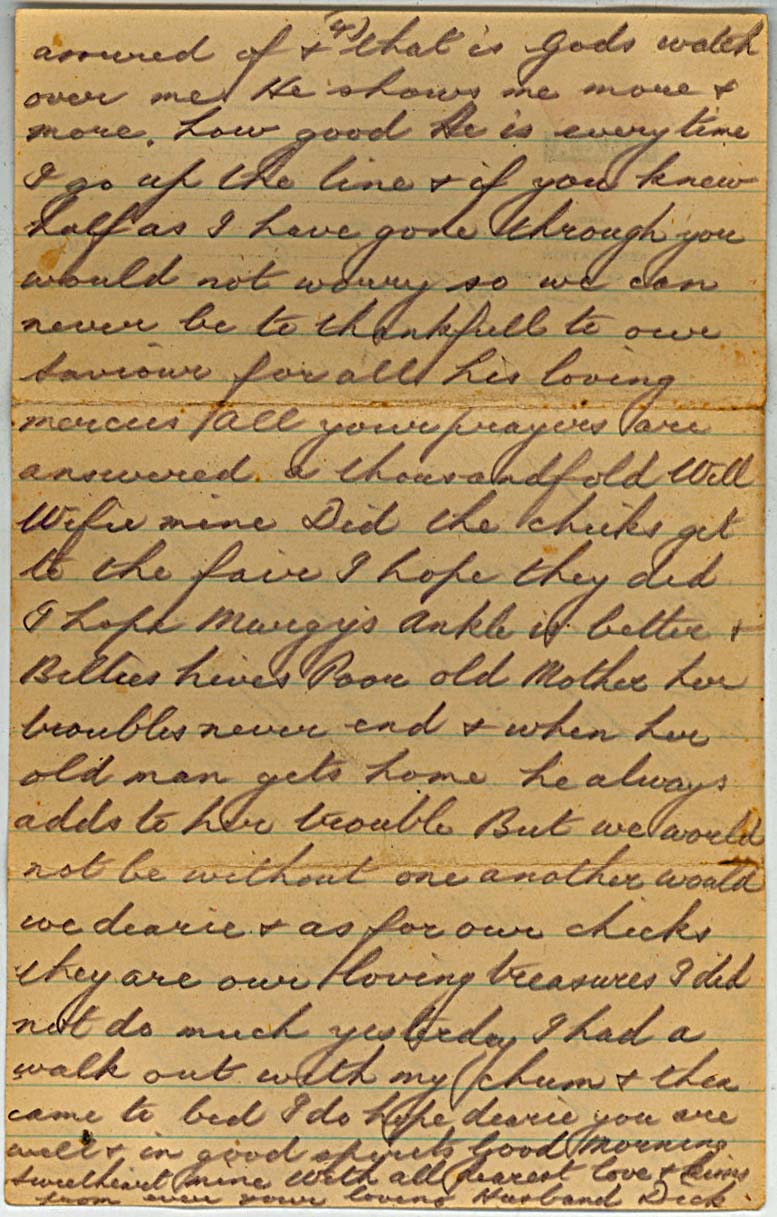 (4)
assured of & that is Gods watch
over me. He shows me more &
more. how good He is everytime
I go up the line & if you knew
half as I have gone through you
would not worry so we can
never be to thankfull to our
Saviour for all his loving
mercies All your prayers are
answered a thousandfold Well
Wifie mine Did the chicks get
to the fair I hope they did
I hope Margys Ankle is better &
Betties hives Poor old Mother her
troubles never end & when her
old man gets home he always
adds to her trouble But we would
not be without one another would
we dearie & as for our chicks
they are our loving treasures I did
not do much yesterday I had a
walk out with my chum & then
came to bed I do hope dearie you are
well & in good spirits Good Morning
Sweetheart mine With all dearest love & kisses
from ever your loving Husband Dick